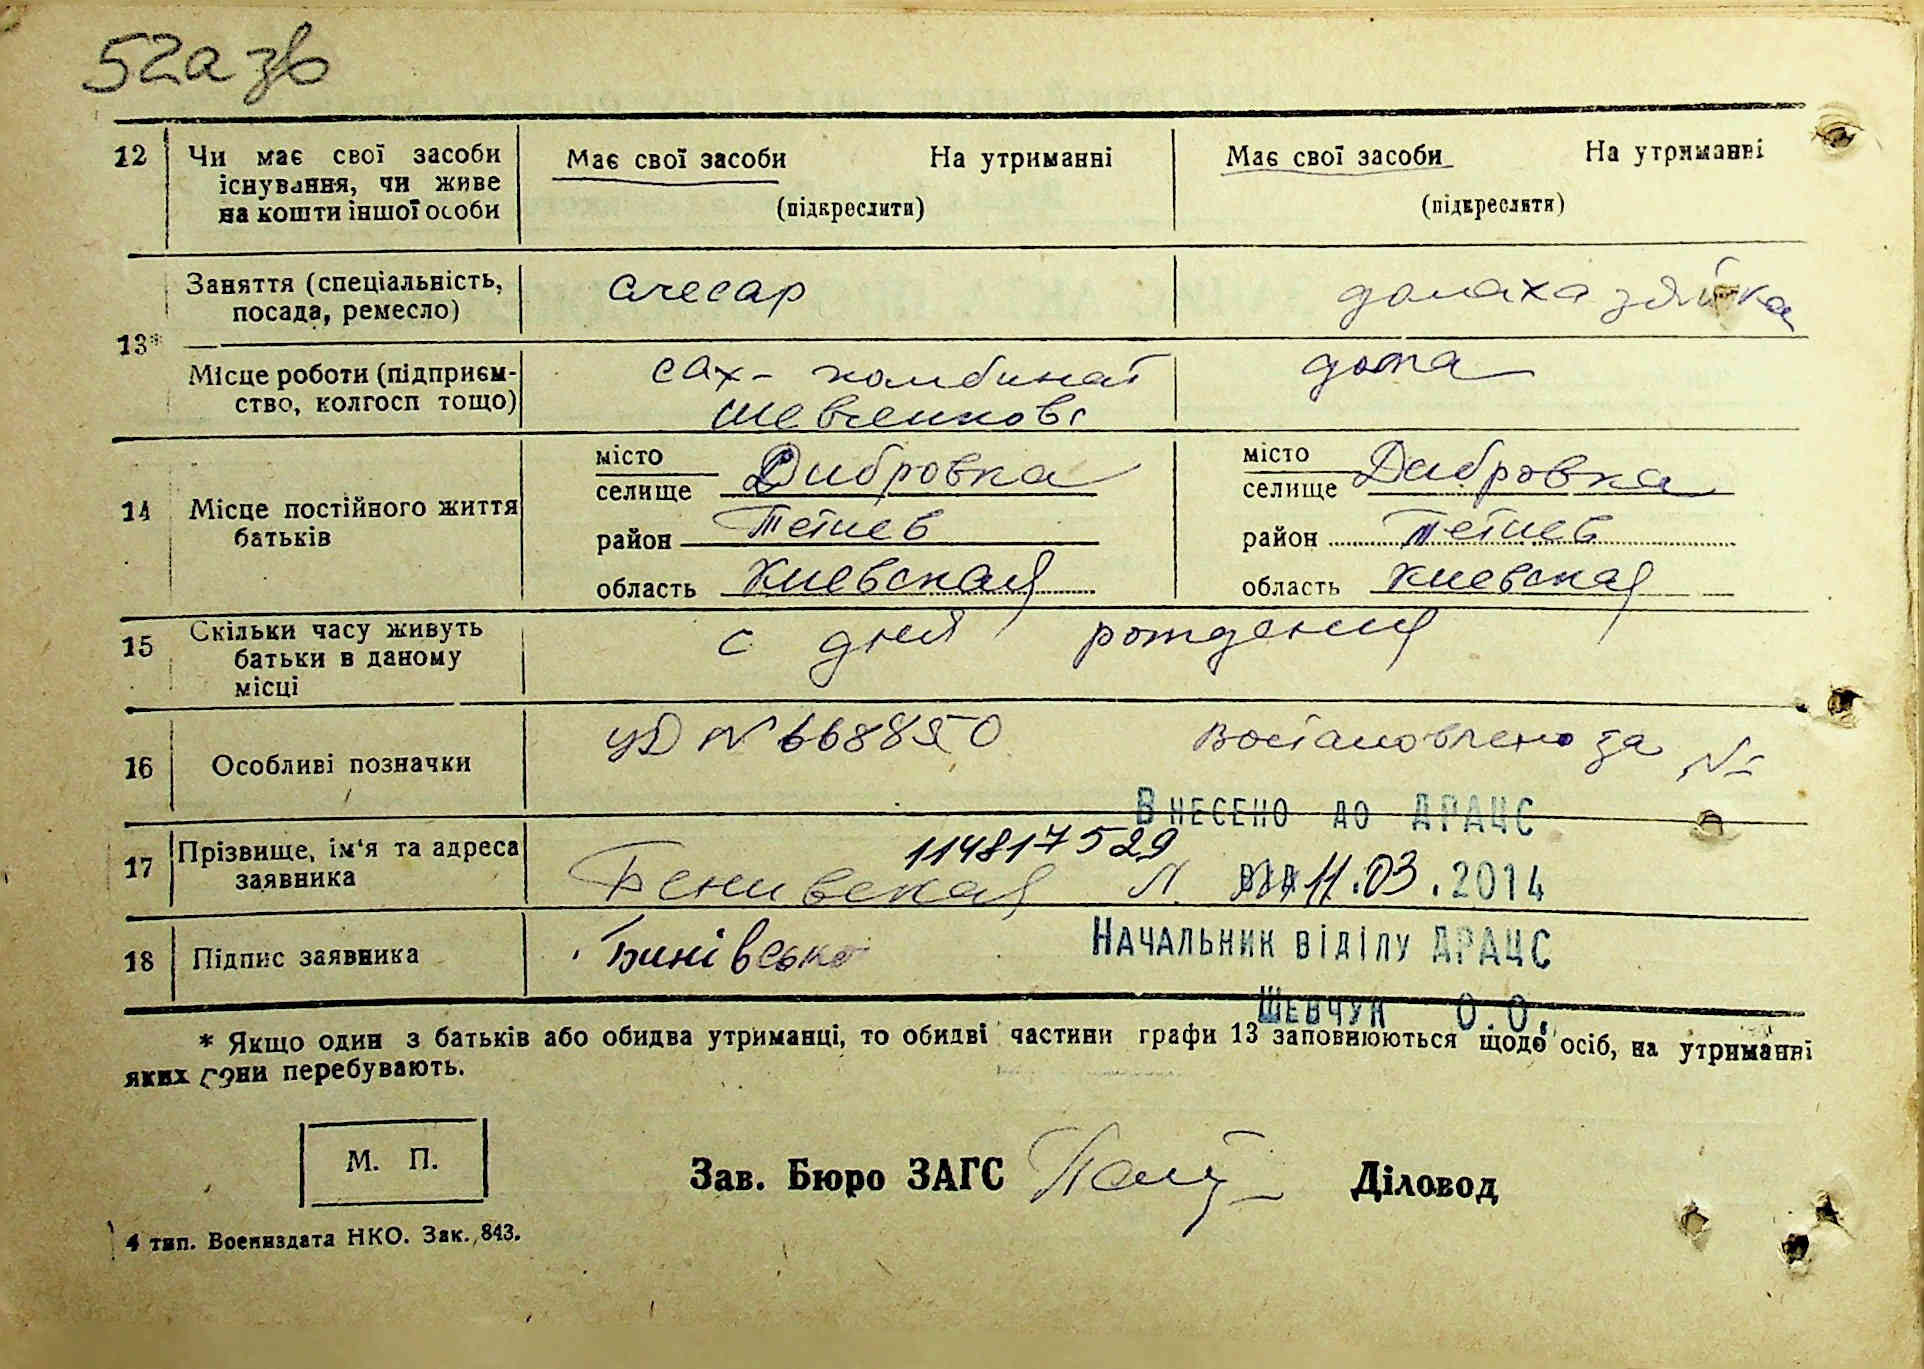 52а зв
12 Чи має свої засоби існування, чи живе на кошти іншої особи
Має свої засоби На утриманні
(підкреслити)
Має свої засоби На утриманні
(підкреслити)
13*
Заняття (спеціальність, посада, ремесло)
слесар
домахазяйка
Місце роботи (підприєм-
ство, колгосп тощо)
сах-комбинат
дома
14 Місце постійного життя батьків
місто
селище Дибровка
район Тетиев
область Киевская
місто
селище Дибровка
район Тетиев
область Киевская
15 Скільки часу живуть батьки в даному місці
с дня рождения
16 Особливі позначки
УД № 668850 Востановлено за №
Внесено до ДРАЦС
17 Прізвище, ім'я та адреса заявника
114817529
Бенивская Л.
11.03.2014
18 Підпис заявника
Бинівська
Начальник відділу ДРАЦС
Шевчук О.О.
* Якщо один з батьків або обидва утриманці, то обидві частини графи 13 заповнюються щодо осіб, на утриманні
яких вони перебувають.
М. П.
Зав. Бюро ЗАГС Діловод
4 тип. Воениздата НКО. Зак. 843.